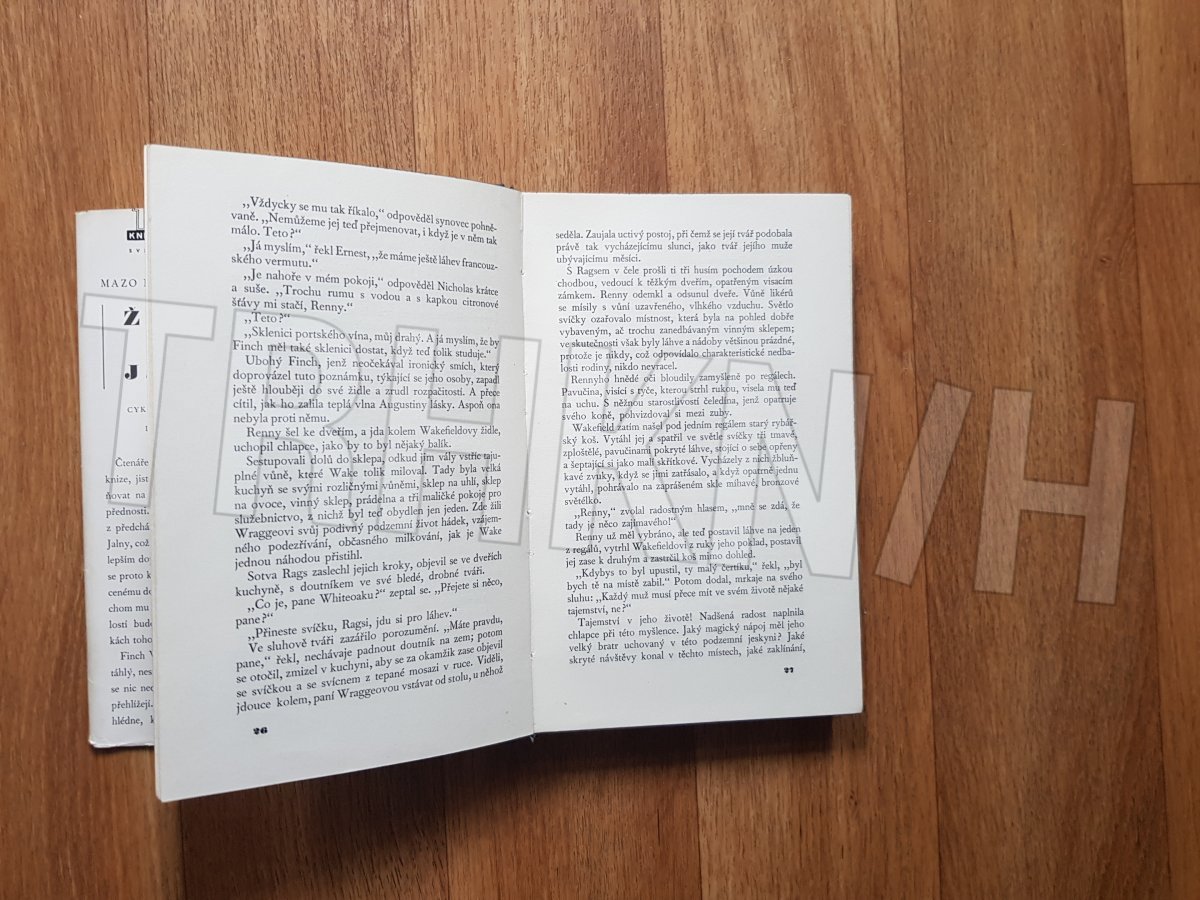 KN
SV
MAZO
Ž
J
P
CYK
I
Čtenáře
knize, jist
ňovat na
přednosti.
z předchá
Jalny, což
lepším do
se proto k
cenému de
chom mu
losti bude
kách toho
Finch
táhlý, nes
se nic nec
přehlížejí.
hlédne, k
„Vždycky se mu tak říkalo,“ odpověděl synovec pohně-
vaně. „Nemůžeme jej teď přejmenovat, i když je v něm tak
málo. Teto?“
„Já myslím,“ řekl Ernest, „že máme ještě láhev francouz-
ského vermutu.“
„Je nahoře v mém pokoji,“ odpověděl Nicholas krátce
a suše. „Trochu rumu s vodou a s kapkou citronové
šťávy mi stačí, Renny.“
„Teto?“
„Sklenici portského vína, můj drahý. A já myslím, že by
Finch měl také sklenici dostat, když teď tolik studuje.“
Ubohý Finch, jenž neočekával ironický smích, který
doprovázel tuto poznámku, týkající se jeho osoby, zapadl
ještě hlouběji do své židle a zrudl rozpačitostí. A přece
cítil, jak ho zalila teplá vlna Augustiny lásky. Aspoň ona
nebyla proti němu.
Renny šel ke dveřím, a jda kolem Wakefieldovy židle,
uchopil chlapce, jako by to byl nějaký balík.
Sestupovali dolů do sklepa, odkud jim vály vstříc taju-
plné vůně, které Wake tolik miloval. Tady byla velká
kuchyň se svými rozličnými vůněmi, sklep na uhlí, sklep
na ovoce, vinný sklep, prádelna a tři maličké pokoje pro
služebnictvo, z nichž byl teď obydlen jen jeden. Zde žili
Wraggeovi svůj podivný podzemní život hádek, vzájem-
ného podezřívání, občasného milkování, jak je Wake
jednou náhodou přistihl.
Sotva Rags zaslechl jejich kroky, objevil se ve dveřích
kuchyně, s doutníkem ve své bledé, drobné tváři.
„Co je, pane Whiteoaku?“ zeptal se. „Přejete si něco,
pane?“
„Přineste svíčku, Ragsi, jdu si pro láhev.“
Ve sluhově tváři zazářilo porozumění. „Máte pravdu,
pane,“ řekl, nechávaje padnout doutník na zem; potom
se otočil, zmizel v kuchyni, aby se za okamžik zase objevil
se svíčkou a se svícnem z tepané mosazi v ruce. Viděli,
jdouce kolem, paní Wraggeovou vstávat od stolu, u něhož
26
seděla. Zaujala uctivý postoj, při čemž se její tvář podobala
právě tak vycházejícímu slunci, jako tvář jejího muže
ubývajícímu měsíci.
S Ragsem v čele prošli ti tři husím pochodem úzkou
chodbou, vedoucí k těžkým dveřím, opatřeným visacím
zámkem. Renny odemkl a odsunul dveře. Vůně likérů
se mísily s vůní uzavřeného, vlhkého vzduchu. Světlo
svíčky ozařovalo místnost, která byla na pohled dobře
vybaveným, ač trochu zanedbávaným vinným sklepem;
ve skutečnosti však byly láhve a nádoby většinou prázdné,
protože je nikdy, což odpovídalo charakteristické nedba-
losti rodiny, nikdo nevracel.
Rennyho hnědé oči bloudily zamyšleně po regálech.
Pavučina, visící s tyče, kterou strhl rukou, visela mu teď
na uchu. S něžnou starostlivostí čeledína, jenž opatruje
svého koně, pohvizdoval si mezi zuby.
Wakefield zatím našel pod jedním regálem starý rybář-
ský koš. Vytáhl jej a spatřil ve světle svíčky tři tmavé,
zploštělé, pavučinami pokryté láhve, stojící o sebe opřeny
a šeptající si jako malí skřítkové. Vycházely z nich žbluň-
kavé zvuky, když se jimi zatřásalo, a když opatrně jednu
vytáhl, pohrávalo na zaprášeném skle míhavé, bronzové
světélko.
„Renny,“ zvolal radostným hlasem, „mně se zdá, že
tady je něco zajímavého!“
Renny už měl vybráno, ale teď postavil láhve na jeden
z regálů, vytrhl Wakefieldovi z ruky jeho poklad, postavil
jej zase k druhým a zastrčil koš mimo dohled.
„Kdybys to byl upustil, ty malý čertíku,“ řekl, „byl
bych tě na místě zabil.“ Potom dodal, mrkaje na svého
sluhu: „Každý muž musí přece mít ve svém životě nějaké
tajemství, ne?“
Tajemství v jeho životě! Nadšená radost naplnila
chlapce při této myšlence. Jaký magický nápoj měl jeho
velký bratr uchovaný v této podzemní jeskyni? Jaké
skryté návštěvy konal v těchto místech, jaké zaklínání,
27
TRHKNIH